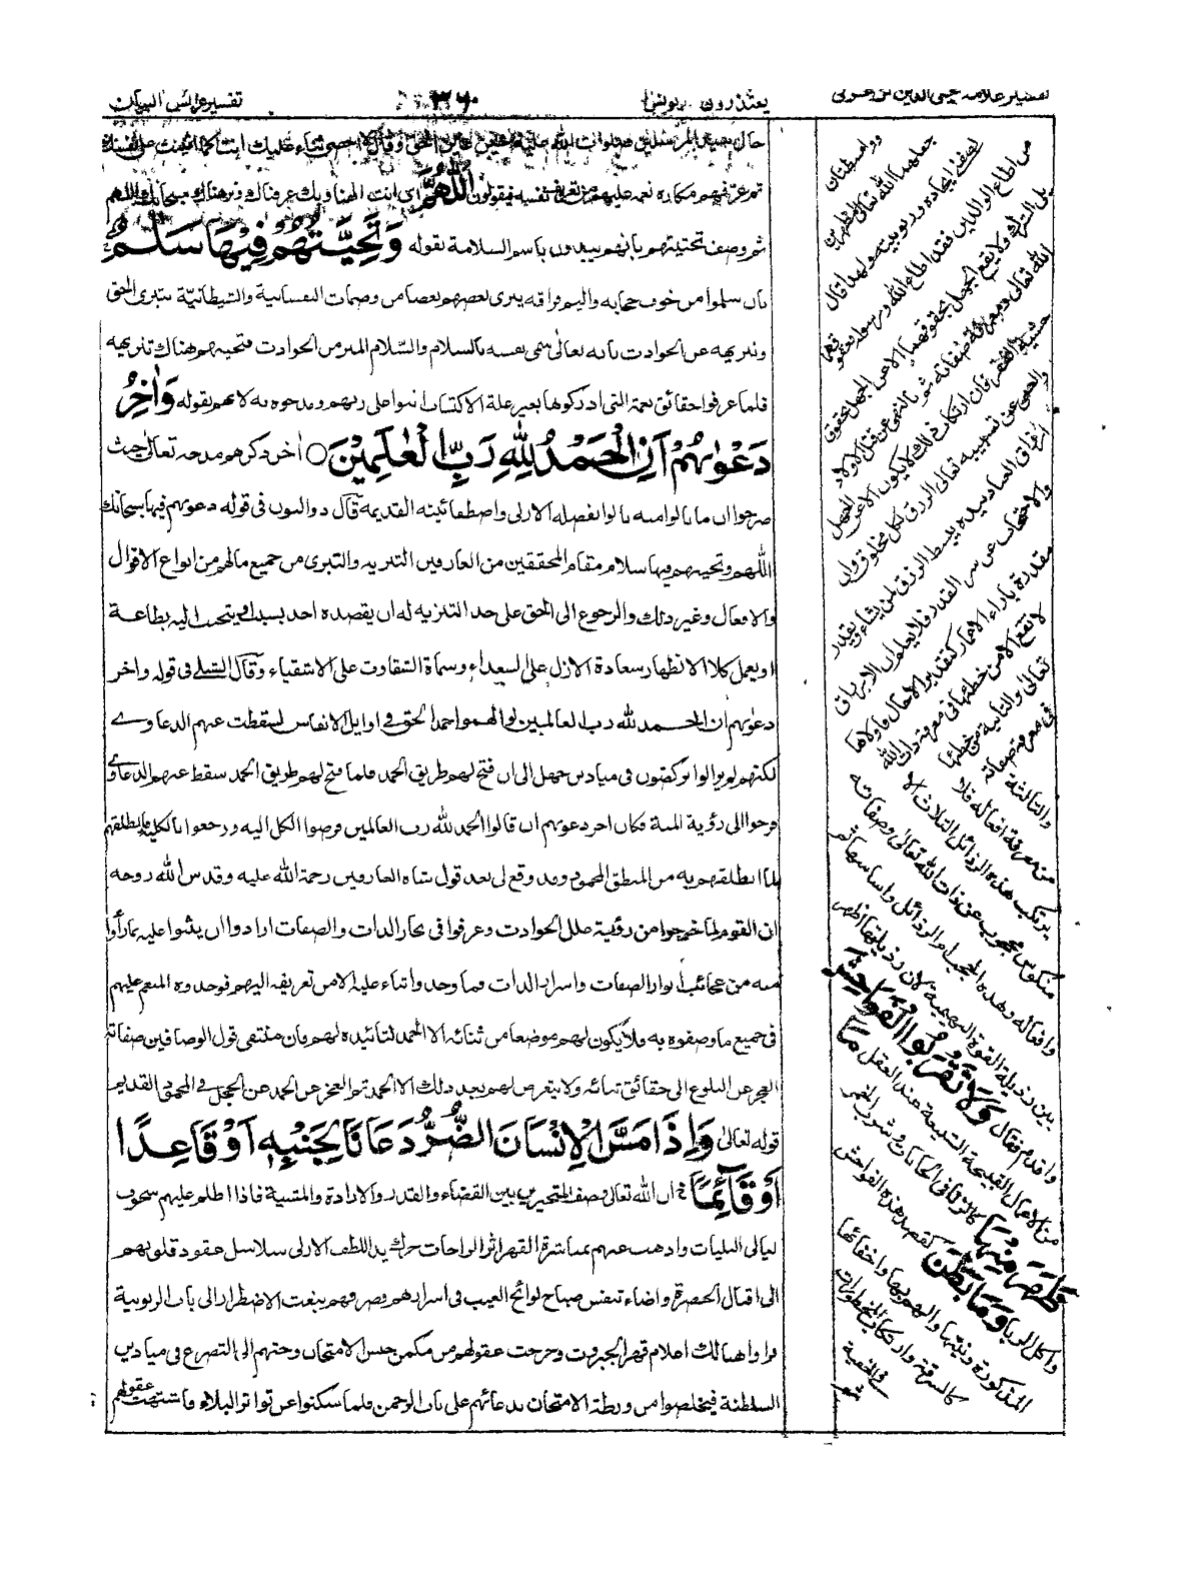 تفسير علامه محيى الدين بن عربى
يعتذرون. يونس
٣٦٠
تفسير عرائس البيان
حال سيد المرسلين صلوات الله عليه حين عاين الحق وقال لا احصى ثناء عليك انت كما اثنيت على نفسك
ثم عرفهم مكاره نعمه عليهم من تعريف نفسه فيقولون اللّٰهُمَّ اى انت الهنا وبك عرفناك ونزهناك سبحانك اللهم
ثم وصف تحيتهم بانهم يبدون باسم السلامة بقوله وَتَحِيَّتُهُمْ فِيْهَا سَلٰمٌ
بان سلموا من حجابه واليم فراقه يبرى بعضهم بعضا من وصمات النفسانية والشيطانية بتبرى الحق
وتنزيهه عن الحوادث بانه تعالى سمى نفسه بالسلام والسلام المبر من الحوادث فتحيتهم هناك تنزيهه
فلما عرفوا حقائق نعمة التى ادركوها بغير علة الاكتساب اثنوا على ربهم ومدحوه به لا بهم بقوله وَاٰخِرُ
دَعْوٰىهُمْ اَنِ الْحَمْدُ لِلّٰهِ رَبِّ الْعٰلَمِيْنَ ○ اٰخر ذكرهم مدحه تعالى حيث
خرجوا ان ما نالوا منه نالوا بفضله الازلى واصطفائيته القديمة قال ذو النون فى قوله دعوٰيهم فيها سبحانك
اللهم وتحيتهم فيها سلام مقام المحققين من العارفين التنزيه والتبرى من جميع مالهم من انواع الاقوال
والافعال وغير ذلك والرجوع الى الحق على حد التنزيه له ان يقصده احد بسبب او يتحبب اليه بطاعة
او بعمل كلا الا اظهار سعادة الازل على السعداء وسماة الشقاوة على الاشقياء وقال الشبلى فى قوله واخر
دعوٰيهم ان الحمد لله رب العالمين لو الهموا حمد الحق فى اوايل الانفاس لسقطت عنهم الدعاوى
لكنهم لم يزالوا يركضون فى ميادين جهل الى ان فتح لهم طريق الحمد فلما فتح لهم طريق الحمد سقط عنهم الدعاوى
فرجوا الى رؤية المنة فكان اخر دعوٰيهم ان قالوا الحمد لله رب العالمين فرضوا الكل اليه ورجعوا بالكلية ما ينطقهم
بما انطقهم به من المنطق المحمود وقد وقع لى بعد قول شاه العارفين رحمة الله عليه وقدس الله روحه
ان القوم لما خرجوا من رؤية علل الحوادث وعرفوا فى بحار الذات والصفات ارادوا ان يثنوا عليه بما رأوا
منه من عجائب انوار الصفات واسرار الذات فما وجدوا ثناء عليه الا من تعريفه اليهم فوجدوه المنعم عليهم
فى جميع ما وصفوه به فلا يكون لهم موضعا من ثنائه الا الحمد لتائيده لهم وان منتهى قول الوصافين صفاته
العجز عن البلوغ الى حقائق ثنائه ولا يتعرض لهم بعد ذلك الا الحمد ثم العجز عن الحمد عن الخجل فى الحمد القديم
قوله تعالى وَاِذَا مَسَّ الْاِنْسَانَ الضُّرُّ دَعَانَا لِجَنْبِهٖ اَوْ قَاعِدًا
اَوْ قَآئِمًا ج ان الله تعالى وصف المتحيرين بين القضاء والقدر والارادة والمشية فاذا اظلم عليهم سحوب
ليالى البليات واذهب عنهم مباشرة القهر اثر الراحات حرك يد اللطف الازلى سلاسل عقود قلوبهم
الى اقبال الحضرة واضاء تنفس صباح لوائح الغيب فى اسرارهم وصرفهم بنعت الاضطرار الى باب الربوبية
فراوا هنالك اعلام قهر الجبروت وخرجت عقولهم من مكمن حبس الامتحان وحثهم الى التضرع فى ميادين
السلطنة فيخلصوا من ورطة الامتحان بدعائهم على باب الرحمن فلما سكنوا عن تواتر البلاء وانتبهت عقولهم
من اطاع الوالدين فقد اطاع الله ورسوله فعقوقهما
يلى الشرك ولا يقع الجهل بحقوقهما الا عن الجهل بحقوق
الله تعالى ومعرفة صفاته ثم بالنهى عن قتل الاولاد
خشية الفقر فان ارتكاب ذلك لا يكون الا عن الجهل
والعمى عن تسبيبه تعالى الرزق لكل مخلوق وان
ارزاق العباد بيده يبسط الرزق لمن يشاء ويقدر
والاحتجاب عن سر القدر فلا يعلم ان الارزاق
مقدرة بازاء الاعمار كتقدير الاجال فاولاها
لا تقع الا من خطئها فى معرفة ذات الله
تعالى والثانية من خطئها
فى معرفة صفاته
والثالثة
من معرفة افعاله فلا
يرتكب هذه الرذائل الثلاث الا
منكوس محجوب عن ذات الله تعالى وصفاته
وافعاله وهذه الحجب ام الرذائل واساسها ثم
بين رذيلة القوة البهيمية لان رذيلتها اظهر
واقدم فقال وَلَا تَقْرَبُوا الْفَوَاحِشَ
من الاعمال القبيحة الشنيعة عند العقل مَا
ظَهَرَ مِنْهَا كالزنا فى الحانات وشرب الخمر
واكل الربا وَمَا بَطَنَ كقصد هذه الفواحش
المذكورة ونيتها والهم بها واخفائها
كالسرقة وارتكاب المحظورات
فى الخفية